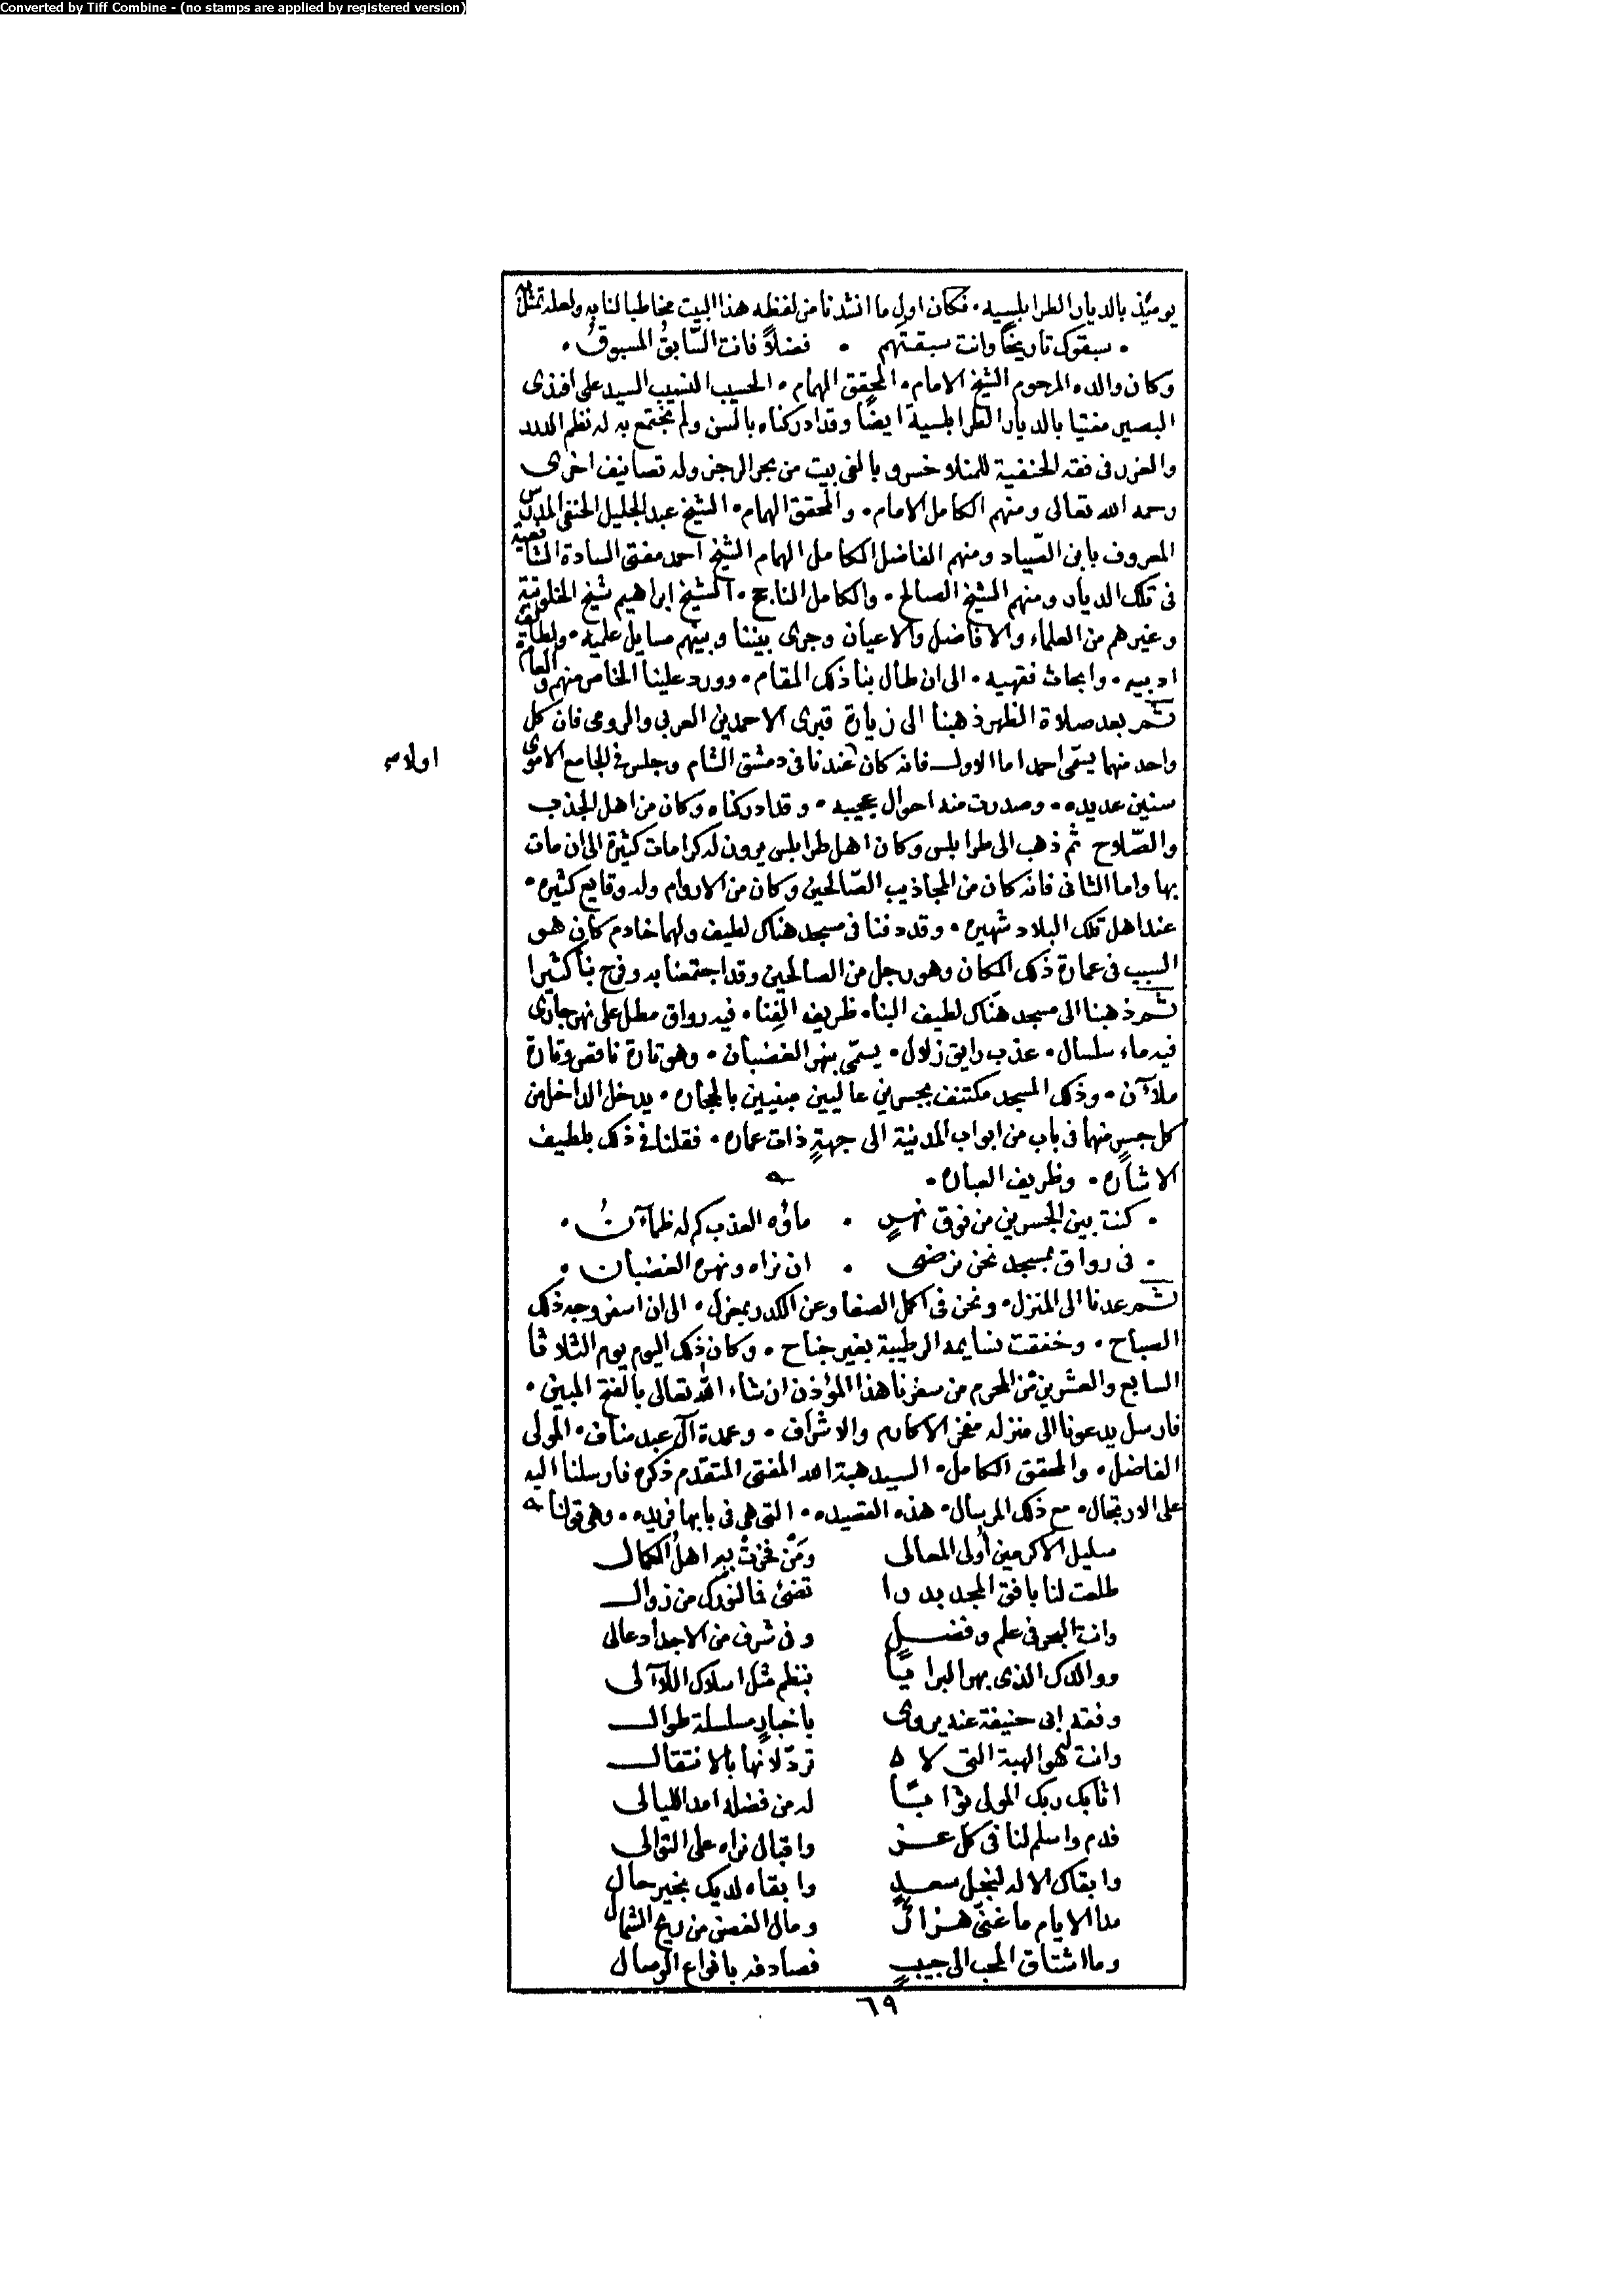 Converted by Tiff Combine - (no stamps are applied by registered version)
يوميذ بالديار الطرابلسيه . فكان اول ما انشدنا من لفظه هذا البيت مخاطبا لنا به ولعله تمثل به
. سبقوك تاريخًا وانت سبقتهم . فضلاً فانت السّابقُ المسبوقُ .
وكان والده المرحوم الشيخ الامام . المحقق الهمام . الحسيب النسيب السيد على افندى
البصير مفتيا بالديار الطرابلسية ايضًا وقد ادركناه بالسن ولم نجتمع به له نظم الدرر
والغرر فى فقه الحنفية للمنلا خسرو بالفى بيت من بحر الرجز وله تصانيف اخرى
رحمه الله تعالى ومنهم الكامل الامام . والمحقق الهمام . الشيخ عبد الجليل الحنفى المدرس
المعروف بابن الصّياد ومنهم الفاضل الكامل الهمام الشيخ احمد مفتى السادة الشافعية
فى تلك الديار ومنهم الشيخ الصالح . والكامل الناجح . الشيخ ابراهيم شيخ الخلوتية
وغيرهم من العلماء والافاضل والاعيان وجرى بيننا وبينهم مسايل علميه . ولطايف
ادبيه . وابحاث فقهيه . الى ان طال بنا ذلك المقام . وورد علينا الخاص منهم والعام
ثم بعد صلاة الظهر ذهبنا الى زيارة قبرى الاحمدين العربى والرومى فان كل
واحد منهما يسمّى احمد اما الاول فانه كان عندنا فى دمشق الشام وجلس فى الجامع الاموى
اولاد
سنين عديده . وصدرت منه احوال عجيبه . وقد ادركناه وكان من اهل الجذب
والصّلاح ثم ذهب الى طرابلس وكان اهل طرابلس يرون له كرامات كثيرة الى ان مات
بها واما الثانى فانه كان من المجاذيب الصّالحين وكان من الاروام وله وقايع كثيره .
عند اهل تلك البلاد شهيره . وقد دفنا فى مسجد هناك لطيف ولهما خادم كان هو
السبب فى عمارة ذلك المكان وهو رجل من الصالحين وقد اجتمعنا به وفرح بنا كثيرا
ثم ذهبنا الى مسجد هناك لطيف البنا . ظريف الفِنا . فيه رواق مطل على نهر جارى
فيه ماء سلسال . عذب رايق زلال . يسمّى بنهر الغضبان . وهو تارة ناقص وتارة
ملآن . وذلك المسجد مكتنف بجسرين عاليين مبنيين بالحجاره . يدخل الداخل من
كل جسرٍ منهما فى باب من ابواب المدينة الى جهةٍ ذات عماره . فقلنا فى ذلك بلطيف
الاشاره . وظريف العباره .
. كنت بين الجسرين من فوق نهرٍ . ماؤه العذب كم له ظمآنُ .
. فى رواق بمسجد نحن نرضى . ان نراه ونهره الغضبان .
ثم عدنا الى المنزل . ونحن فى اكمل الصفا وعن الكدر بمعزل . الى ان اسفر وجه ذلك
الصباح . وخفقت نسايمه الرطيبة بغير جناح . وكان ذلك اليوم يوم الثلاثا
السابع والعشرين من المحرم من سفرنا هذا المؤذن ان شاء الله تعالى بالفتح المبين .
فارسل يدعونا الى منزله مفخر الاكارم والاشراف . وعمدة آل عبد مناف . المولى
الفاضل . والمحقق الكامل . السيد هبة الله المفتى المتقدم ذكره فارسلنا اليه
على الارتجال . مع ذلك المرسال . هذه القصيده . التى هى فى بابها فريده . وهى قولنا
سليل الاكرمين أُولى المعالى ومَن فخرت به اهلُ الكمال
طلعت لنا بافق المجد بدرا تضئ فما لنورك من زوال
وانت البحر فى علم وفضلٍ وفى شرف من الاجداد عالى
ووالدك الذى بهر البرايَا بنظم مثل اسلاك اللآلى
وفقه ابى حنيفة عنه يروى باخبارٍ مسلسلة طوال
وانت لهو الهبة التى لا تردّ لانها بالانتقال
اثابك ربك المولى ثوابًا له من فضله امد الليالى
فدم واسلم لنا فى كل عز واقبال نراه على التوالى
وابقاك الاله لنجل سعدٍ وابقاه لديك بخير حال
مدا الايام ما غنّى هزار ومال الغصن من ريح الشمال
وما اشتاق المحب الى حبيبٍ فصادفه بانواع الوصال
٦٩